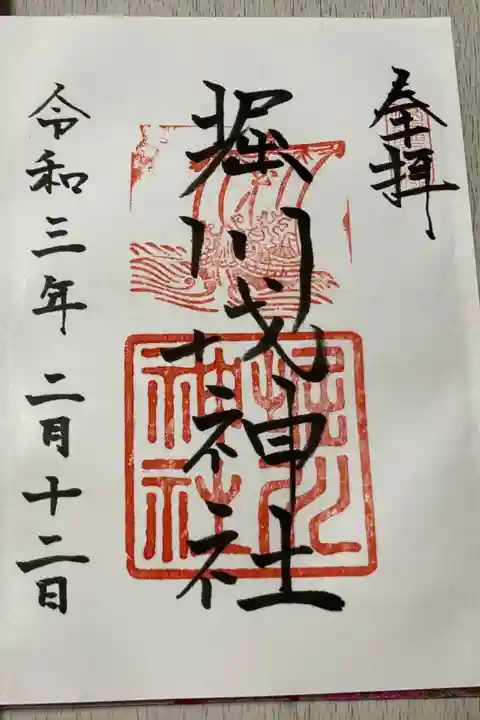 奉拝
堀川戎神社
堀川
神社
令和三年二月十二日